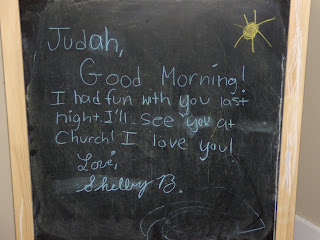 Judah,
Good Morning!
I had fun with you last
night. I'll see you at
Church! I love you!
Love,
Shelby B.